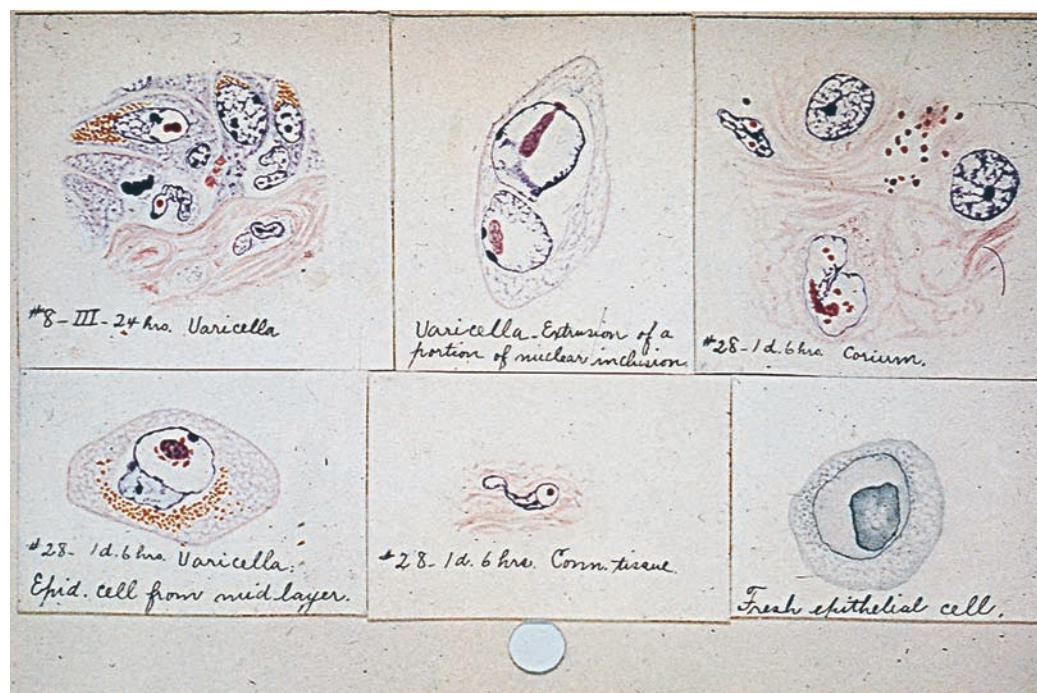 #8-III-24 hrs. Varicella
Varicella-Extrusion of a
portion of nuclear inclusion.
#28-1d. 6 hrs. Corium.
#28-1d. 6 hrs. Varicella.
Epid. cell from mid layer.
#28-1d. 6 hrs. Conn. tissue.
Fresh epithelial cell.